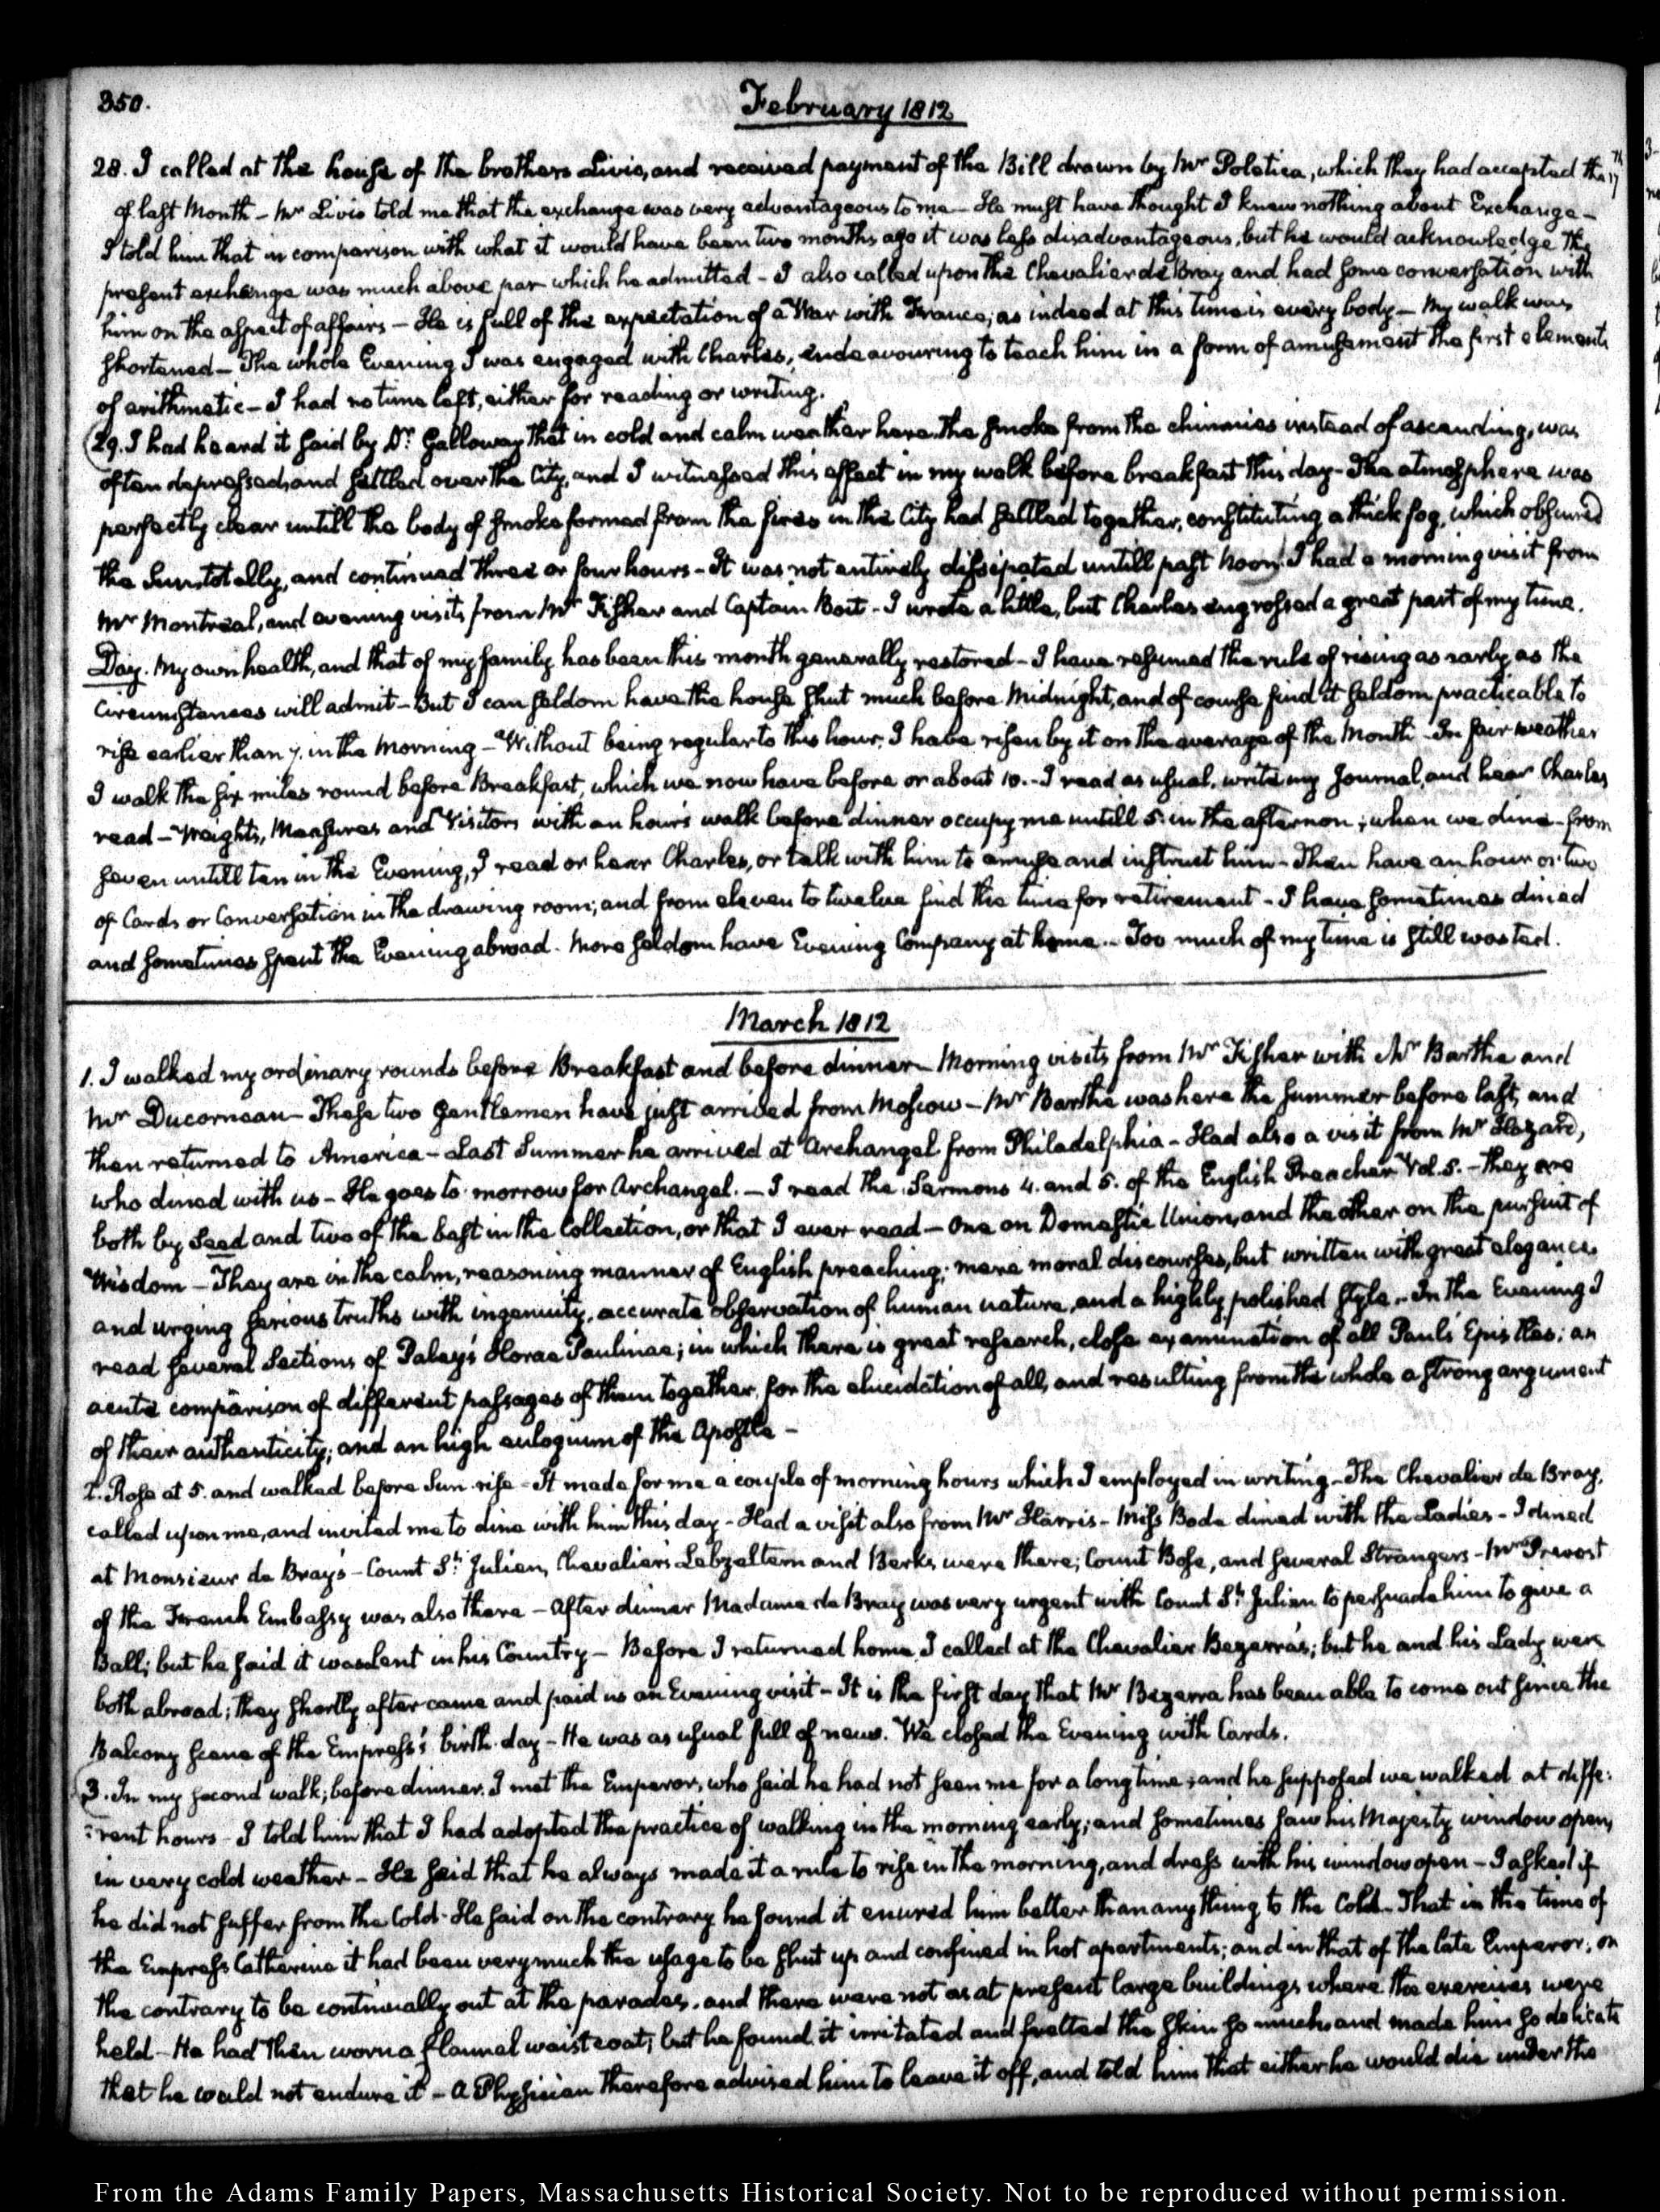 350.
February 1812
28. I called at the house of the brothers Livio, and received payment of the Bill drawn by Mr Poletica, which they had accepted the 17th
of last Month – Mr Livio told me that the exchange was very advantageous to me – He must have thought I knew nothing about Exchange –
I told him that in comparison with what it would have been two months ago it was less disadvantageous, but he would acknowledge the
present exchange was much above par which he admitted – I also called upon the Chevalier de Bray and had some conversation with
him on the aspect of affairs – He is full of the expectation of a War with France, as indeed at this time is every body – My walk was
shortened – The whole Evening I was engaged with Charles, endeavouring to teach him in a form of amusement the first elements
of arithmetic – I had no time left, either for reading or writing.
29. I had heard it said by Dr Galloway that in cold and calm weather here the smoke from the chimnies instead of ascending, was
often depressed, and settled over the City, and I witnessed this effect in my walk before breakfast this day – The atmosphere was
perfectly clear untill the body of smoke formed from the fires in the City had settled together, constituting a thick fog, which obscured
the Sun totally, and continued three or four hours – It was not entirely dissipated untill past Noon. I had a morning visit from
Mr Montreal, and evening visits from Mr Fisher and Captain Bort – I wrote a little, but Charles engrossed a great part of my time.
Day. My own health, and that of my family has been this month generally restored – I have resumed the rule of rising as early as the
Circumstances will admit – But I can seldom have the house shut much before Midnight, and of course find it seldom practicable to
rise earlier than 7. in the Morning – Without being regular to this hour, I have risen by it on the average of the Month – In fair weather
I walk the six miles round before Breakfast, which we now have before or about 10. – I read as usual, write my Journal, and hear Charles
read – Weights, Measures and Visitors with an hour's walk before dinner occupy me untill 5. in the afternoon, when we dine – from
seven untill ten in the Evening, I read or hear Charles, or talk with him to amuse and instruct him – Then have an hour or two
of Cards or Conversation in the drawing room; and from eleven to twelve find the time for retirement – I have sometimes dined
and sometimes spent the Evening abroad. More seldom have Evening Company at home – Too much of my time is still wasted.
March 1812
1. I walked my ordinary rounds before Breakfast and before dinner – Morning visits from Mr Fisher with Mr Barthe and
Mr Ducorneau – These two Gentlemen have just arrived from Moscow – Mr Barthe was here the Summer before last, and
then returned to America – Last Summer he arrived at Archangel from Philadelphia – Had also a visit from Mr Hazard,
who dined with us – He goes to-morrow for Archangel. – I read the Sermons 4. and 5. of the English Preacher Vol. 5. – They are
both by Seed and two of the best in the Collection, or that I ever read – One on Domestic Union, and the other on the pursuit of
Wisdom – They are in the calm, reasoning manner of English preaching; mere moral discourses, but written with great elegance
and urging serious truths with ingenuity, accurate observation of human nature, and a highly polished style. – In the Evening I
read several Sections of Paley's Horae Paulinae; in which there is great research, close examination of all Paul's Epistles; an
acute comparison of different passages of them together, for the elucidation of all, and resulting from the whole a strong argument
of their authenticity; and an high eulogium of the Apostle –
2. Rose at 5. and walked before Sun-rise – It made for me a couple of morning hours which I employed in writing – The Chevalier de Bray,
called upon me, and invited me to dine with him this day – Had a visit also from Mr Harris – Miss Bode dined with the Ladies – I dined
at Monsieur de Bray's – Count St Julien, Chevaliers Lebzeltern and Berks were there; Count Bose, and several Strangers – Mr Prevost
of the French Embassy was also there – After dinner Madame de Bray was very urgent with Count St Julien to persuade him to give a
Ball; but he said it was lent in his Country – Before I returned home I called at the Chevalier Bezerra's; but he and his Lady were
both abroad; they shortly after came and paid us an Evening visit – It is the first day that Mr Bezerra has been able to come out since the
Balcony scene of the Empress's birth-day – He was as usual full of news. We closed the Evening with Cards.
3. In my second walk, before dinner. I met the Emperor, who said he had not seen me for a long time, and he supposed we walked at diffe:
:rent hours – I told him that I had adopted the practice of walking in the morning early; and sometimes saw his Majesty window open,
in very cold weather – He said that he always made it a rule to rise in the morning, and dress with his window open – I asked if
he did not suffer from the Cold – He said on the contrary he found it enured him better than any thing to the Cold – That in the time of
the Empress Catherine it had been very much the usage to be shut up and confined in hot apartments; and in that of the late Emperor, on
the contrary to be continually out at the parades, and there were not as at present large buildings where the exercises were
held – He had then worn a flannel waistcoat, but he found it irritated and fretted the skin so much, and made him so delicate
that he could not endure it – A Physician therefore advised him to leave it off, and told him that either he would die under the
From the Adams Family Papers, Massachusetts Historical Society. Not to be reproduced without permission.